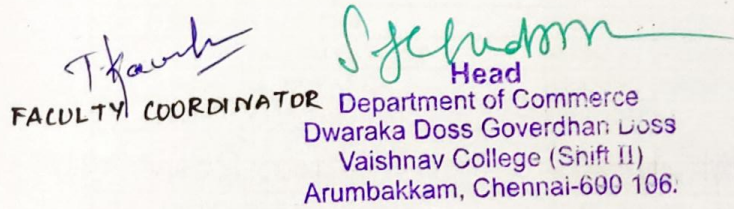 FACULTY COORDINATOR
Head
Department of Commerce
Dwaraka Doss Goverdhan Doss
Vaishnav College (Shift II)
Arumbakkam, Chennai-600 106.